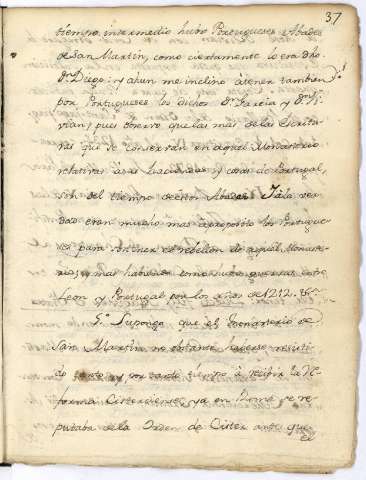 37
tiempo intermedio hubo Portugueses Abades
de San Martin, como ciertamente lo era dho
Dn. Diego: y ahun me inclino a tener tambien
por Portugueses los dichos Dn. Garcia y Dn.
pues observo que las mas de las Escritu-
ras que se conservan en aquel Monasterio
relativas a sus haciendas y cosas de Portugal,
son del tiempo de estos Abades. I a la ver-
dad eran mucho mas a proposito los Portugue-
ses para sostener el rebelion de aquel Monaste-
rio, y mas habiendo como hubo guerras entre
Leon y Portugal por los años de 1212. &ra.
5º. Supongo que el Monasterio de
San Martin no obstante haberse resisti-
do tanto y por tanto tiempo à recibir la Re-
forma Cisterciense, ya en Roma se re-
putaba de la Orden de Cister antes que
el